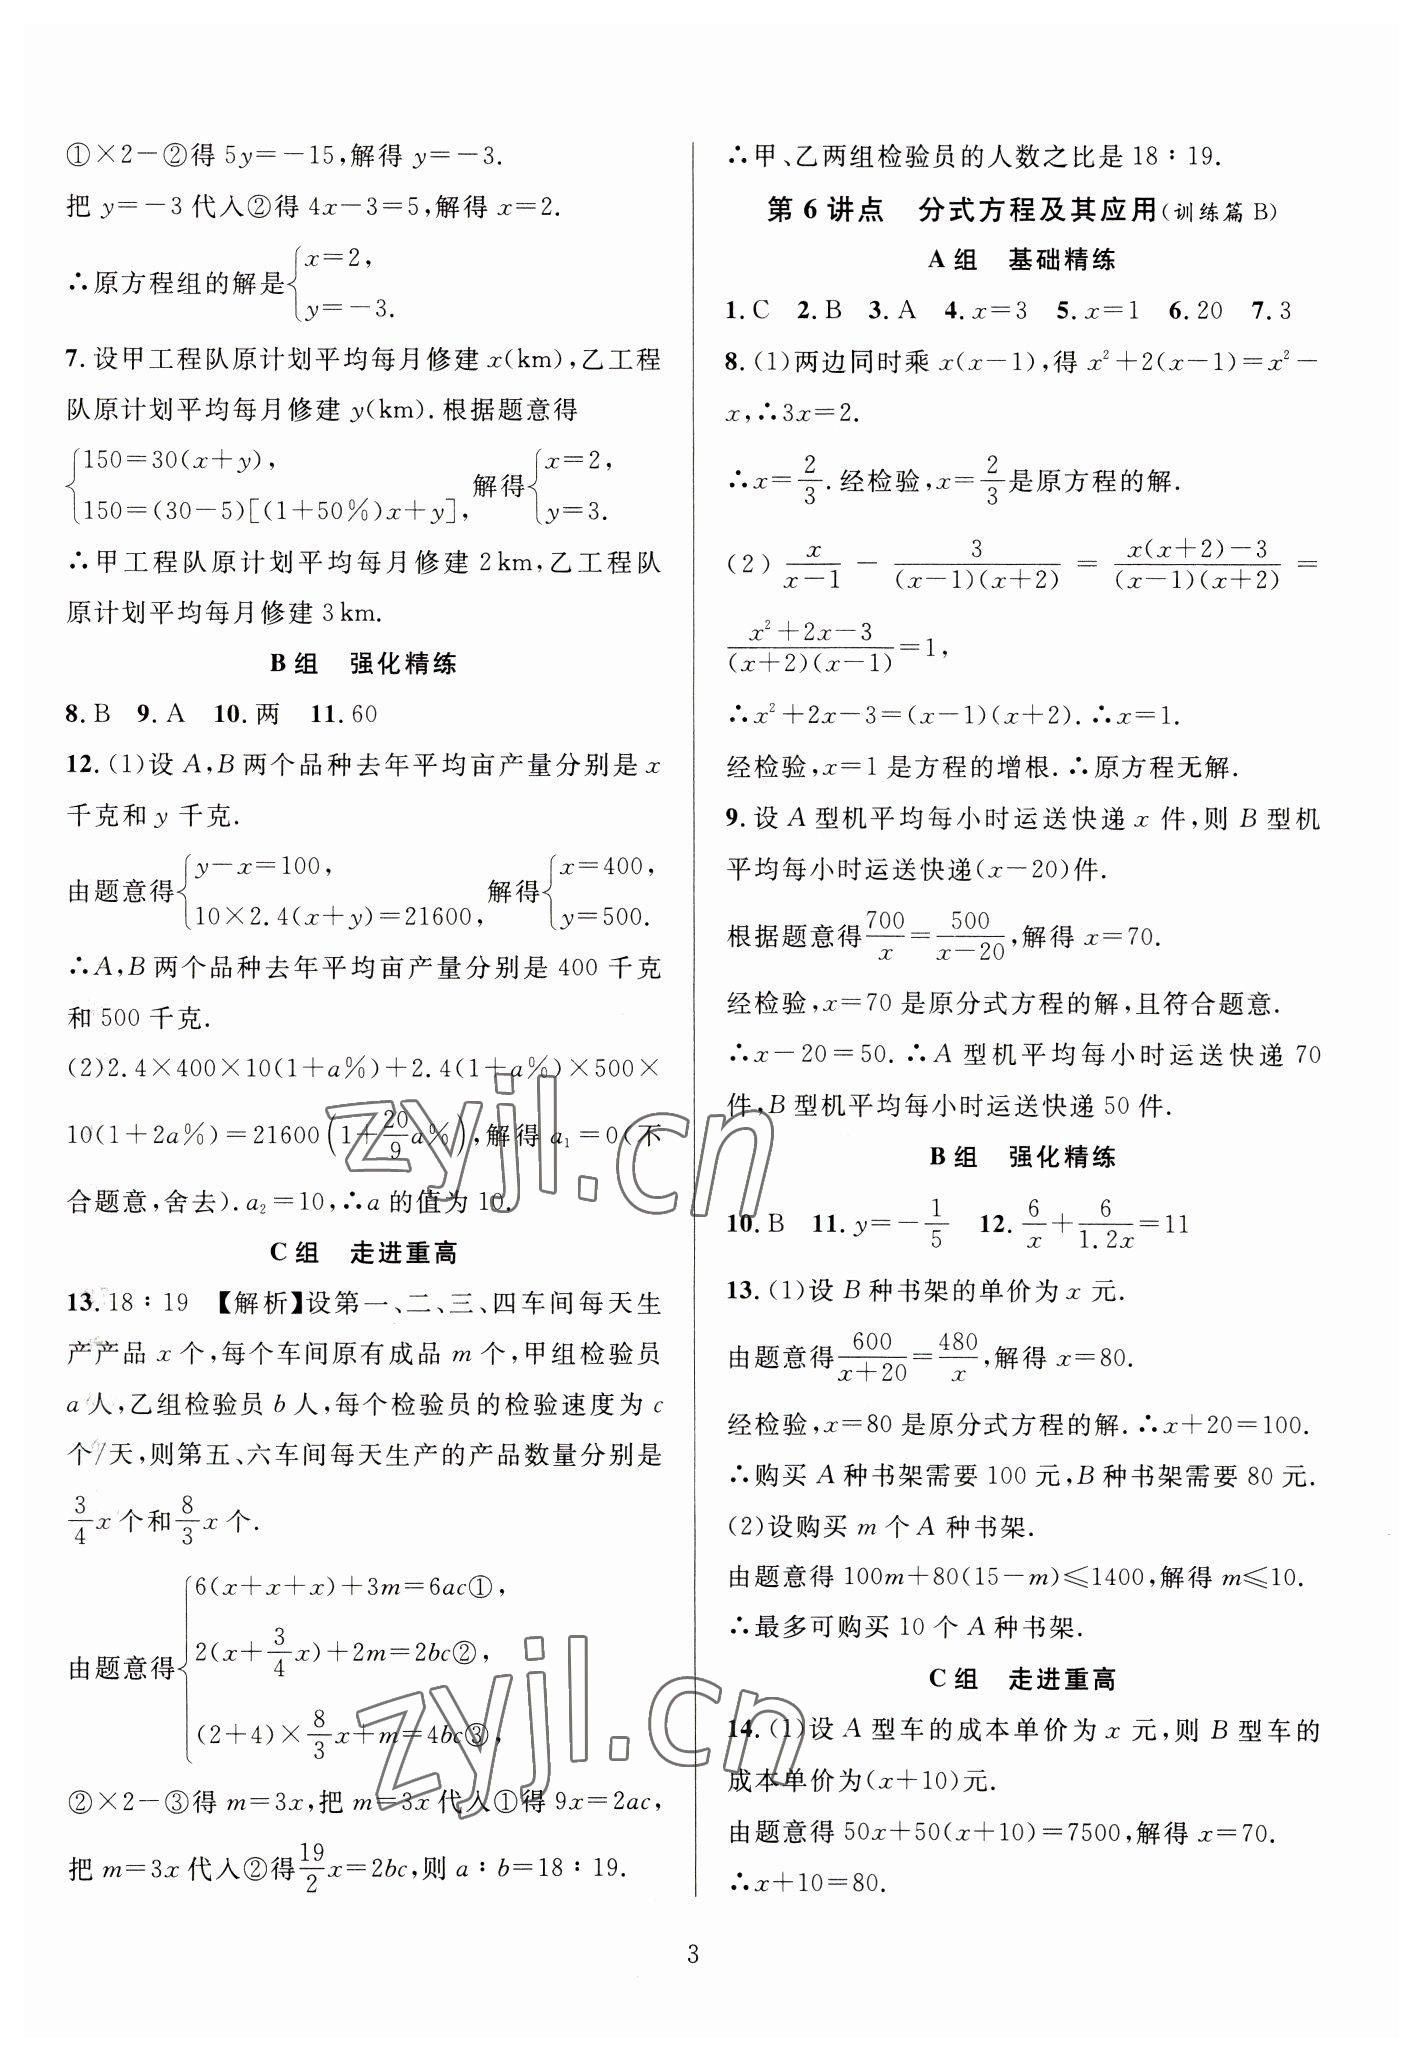 ①×2－②得 5y＝－15,解得 y＝－3.
把 y＝－3 代入②得 4x－3＝5,解得 x＝2.
∴原方程组的解是{x＝2,
y＝－3.
7. 设甲工程队原计划平均每月修建 x(km),乙工程
队原计划平均每月修建 y(km). 根据题意得
{150＝30(x＋y),
150＝(30－5)[(1＋50％)x＋y], 解得{x＝2,
y＝3.
∴甲工程队原计划平均每月修建 2 km,乙工程队
原计划平均每月修建 3 km.
B 组　强化精练
8. B　9. A　10. 两　11. 60
12. (1)设 A,B 两个品种去年平均亩产量分别是 x
千克和 y 千克.
由题意得{y－x＝100,
10×2.4(x＋y)＝21600, 解得{x＝400,
y＝500.
∴A,B 两个品种去年平均亩产量分别是 400 千克
和 500 千克.
(2)2.4×400×10(1＋a％)＋2.4(1＋a％)×500×
10(1＋2a％)＝21600(1＋20/9 a％),解得 a₁＝0(不
合题意,舍去). a₂＝10,∴a 的值为 10.
C 组　走进重高
13. 18∶19　【解析】设第一、二、三、四车间每天生
产产品 x 个,每个车间原有成品 m 个,甲组检验员
a 人,乙组检验员 b 人,每个检验员的检验速度为 c
个/天,则第五、六车间每天生产的产品数量分别是
3/4 x 个和 8/3 x 个.
由题意得{6(x＋x＋x)＋3m＝6ac①,
2(x＋3/4 x)＋2m＝2bc②,
(2＋4)×8/3 x＋m＝4bc③,
②×2－③得 m＝3x,把 m＝3x 代入①得 9x＝2ac,
把 m＝3x 代入②得 19/2 x＝2bc,则 a∶b＝18∶19.
∴甲、乙两组检验员的人数之比是 18∶19.
第 6 讲点　分式方程及其应用(训练篇 B)
A 组　基础精练
1. C　2. B　3. A　4. x＝3　5. x＝1　6. 20　7. 3
8. (1)两边同时乘 x(x－1),得 x²＋2(x－1)＝x²－
x,∴3x＝2.
∴x＝2/3. 经检验,x＝2/3 是原方程的解.
(2) x/(x－1) － 3/((x－1)(x＋2)) ＝ (x(x＋2)－3)/((x－1)(x＋2)) ＝
(x²＋2x－3)/((x＋2)(x－1))＝1,
∴x²＋2x－3＝(x－1)(x＋2). ∴x＝1.
经检验,x＝1 是方程的增根. ∴原方程无解.
9. 设 A 型机平均每小时运送快递 x 件,则 B 型机
平均每小时运送快递(x－20)件.
根据题意得 700/x＝500/(x－20),解得 x＝70.
经检验,x＝70 是原分式方程的解,且符合题意.
∴x－20＝50. ∴A 型机平均每小时运送快递 70
件,B 型机平均每小时运送快递 50 件.
B 组　强化精练
10. B　11. y＝－1/5　12. 6/x＋6/1.2x＝11
13. (1)设 B 种书架的单价为 x 元.
由题意得 600/(x＋20)＝480/x,解得 x＝80.
经检验,x＝80 是原分式方程的解. ∴x＋20＝100.
∴购买 A 种书架需要 100 元,B 种书架需要 80 元.
(2)设购买 m 个 A 种书架.
由题意得 100m＋80(15－m)≤1400,解得 m≤10.
∴最多可购买 10 个 A 种书架.
C 组　走进重高
14. (1)设 A 型车的成本单价为 x 元,则 B 型车的
成本单价为(x＋10)元.
由题意得 50x＋50(x＋10)＝7500,解得 x＝70.
∴x＋10＝80.
3
zyjl.cn
zyjl.cn